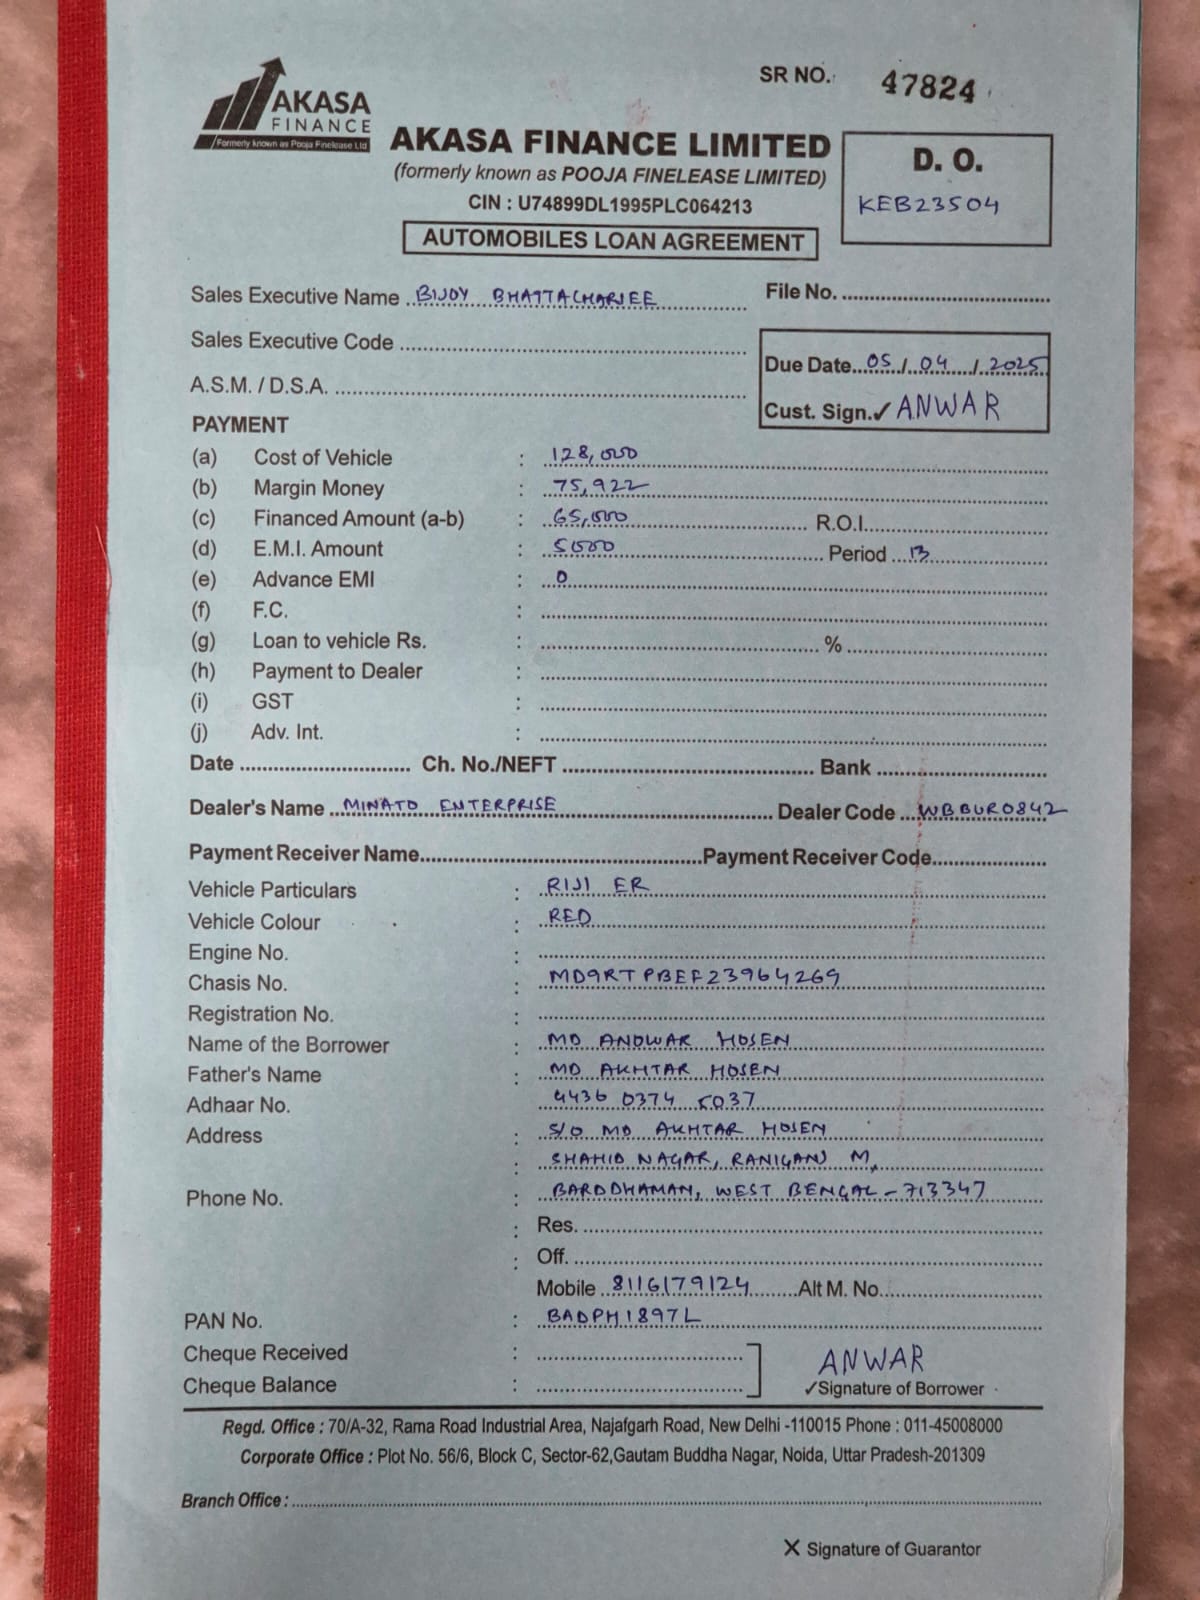 AKASA
FINANCE
Formerly known as Pooja Finelease Ltd
SR NO. 47824
AKASA FINANCE LIMITED
(formerly known as POOJA FINELEASE LIMITED)
CIN : U74899DL1995PLC064213
AUTOMOBILES LOAN AGREEMENT
D. O.
KEB23504
Sales Executive Name BIJOY BHATTACHARJEE
File No.
Sales Executive Code
Due Date 05/04/2025
A.S.M. / D.S.A.
Cust. Sign.✓ ANWAR
PAYMENT
(a) Cost of Vehicle : 128,000
(b) Margin Money : 75,922
(c) Financed Amount (a-b) : 65,000 R.O.I.
(d) E.M.I. Amount : 5000 Period 13
(e) Advance EMI : 0
(f) F.C. :
(g) Loan to vehicle Rs. : %
(h) Payment to Dealer :
(i) GST :
(j) Adv. Int. :
Date Ch. No./NEFT Bank
Dealer's Name MINATO ENTERPRISE Dealer Code WBBUR0842
Payment Receiver Name Payment Receiver Code
Vehicle Particulars : RIJI ER
Vehicle Colour : RED
Engine No. :
Chasis No. : MD9RTPBEF23964269
Registration No. :
Name of the Borrower : MD ANOWAR HOSEN
Father's Name : MD AKHTAR HOSEN
Adhaar No. 4436 0374 5037
Address : S/O MD AKHTAR HOSEN
: SHAHID NAGAR, RANIGANJ M,
Phone No. : BARDDHAMAN, WEST BENGAL - 713347
: Res.
: Off.
Mobile 8116179124 Alt M. No.
PAN No. : BADPH1897L
Cheque Received :
Cheque Balance :
ANWAR
✓Signature of Borrower
Regd. Office : 70/A-32, Rama Road Industrial Area, Najafgarh Road, New Delhi -110015 Phone : 011-45008000
Corporate Office : Plot No. 56/6, Block C, Sector-62,Gautam Buddha Nagar, Noida, Uttar Pradesh-201309
Branch Office :
X Signature of Guarantor